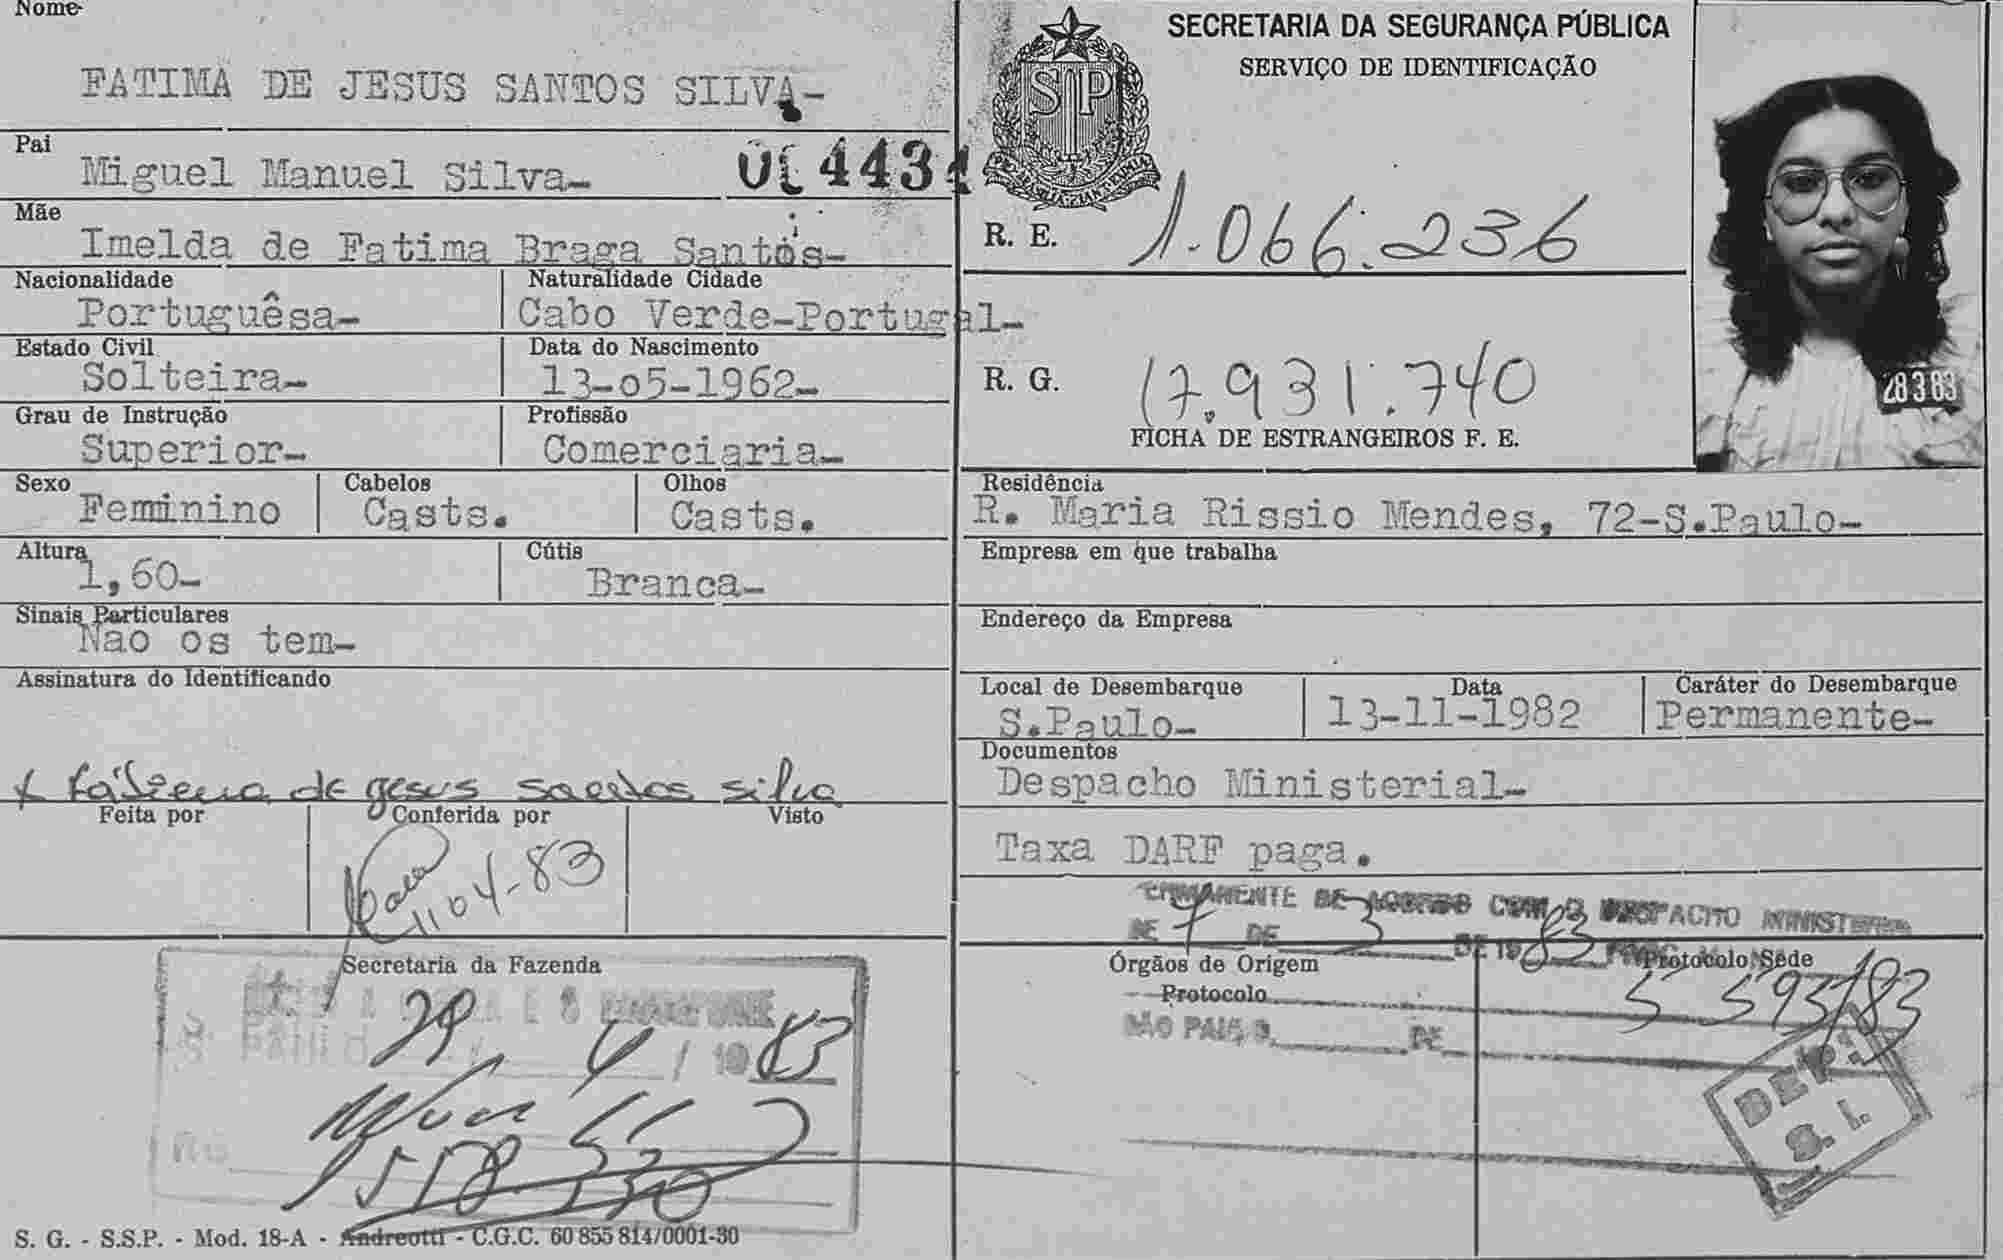 Nome
FATIMA DE JESUS SANTOS SILVA-
Pai
Miguel Manuel Silva-
4434
Mãe
Imelda de Fatima Braga Santos-
Nacionalidade
Portuguêsa-
Naturalidade Cidade
Cabo Verde-Portugal-
Estado Civil
Solteira-
Data do Nascimento
13-05-1962-
Grau de Instrução
Superior-
Profissão
Comerciaria-
Sexo
Feminino
Cabelos
Casts.
Olhos
Casts.
Altura
1,60-
Cútis
Branca-
Sinais Particulares
Nao os tem-
Assinatura do Identificando
x Fátima de Jesus Santos Silva
Feita por
Conferida por
Visto
11 04-83
Secretaria da Fazenda
S. PAULO
29 / 4 / 1983
RG
S. G. - S.S.P. - Mod. 18-A - Andreotti - C.G.C. 60 855 814/0001-30
SECRETARIA DA SEGURANÇA PÚBLICA
SERVIÇO DE IDENTIFICAÇÃO
SP
R. E. 1.066.236
R. G. 17.931.740
FICHA DE ESTRANGEIROS F. E.
28 3 83
Residência
R. Maria Rissio Mendes, 72-S.Paulo-
Empresa em que trabalha
Endereço da Empresa
Local de Desembarque
S.Paulo-
Data
13-11-1982
Caráter do Desembarque
Permanente-
Documentos
Despacho Ministerial-
Taxa DARF paga.
DE ACORDO COM O DESPACHO
DE 7 DE 3 DE 1983
Órgãos de Origem
Protocolo
Protocolo Sede
5 593/83
SÃO PAULO, DE
DEP.
S. I.